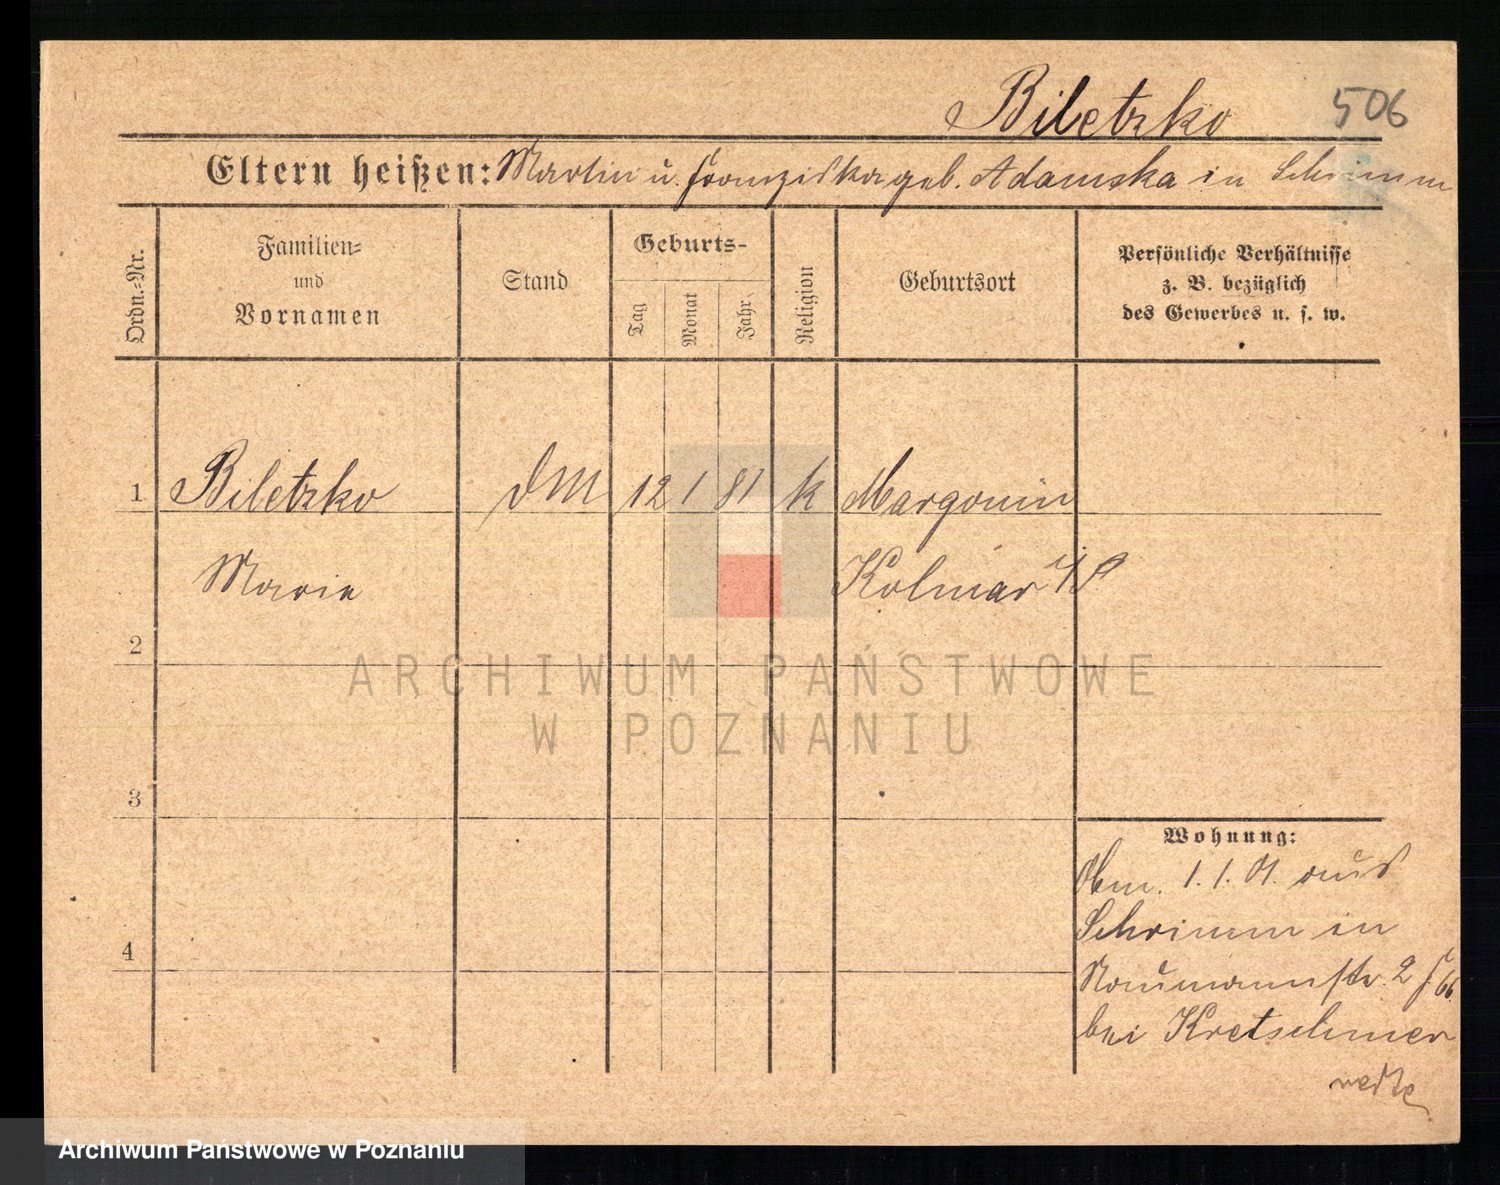 Biletzko 506
Eltern heißen: Martin u. Franziska geb. Adamska in Schrimm
Ordn.-Nr.
Familien-
und
Vornamen
Stand
Geburts-
Tag
Monat
Jahr
Religion
Geburtsort
Persönliche Verhältnisse
z. B. bezüglich
des Gewerbes u. s. w.
1 Biletzko DM 12 1 81 k Margonin
Marie Kolmar i/P
2
ARCHIWUM PAŃSTWOWE
W POZNANIU
3
Wohnung:
1.1.01. aus
Schrimm in
4
Naumannstr. 2
bei Kretschmer
Archiwum Państwowe w Poznaniu